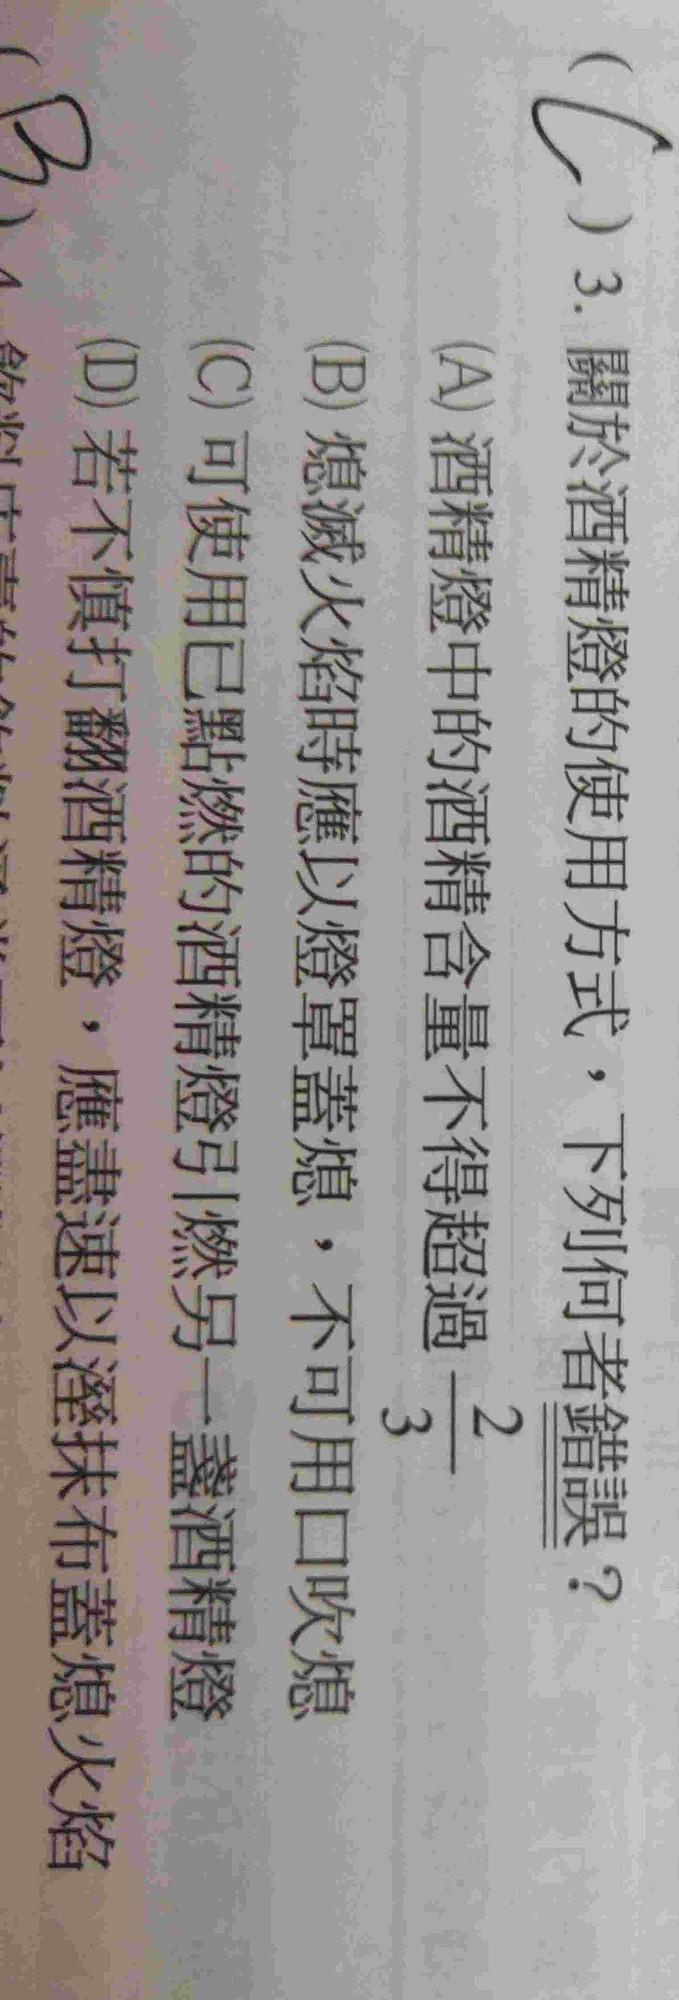 ( C ) 3. 關於酒精燈的使用方式，下列何者錯誤？
(A) 酒精燈中的酒精含量不得超過 2/3
(B) 熄滅火焰時應以燈罩蓋熄，不可用口吹熄
(C) 可使用已點燃的酒精燈引燃另一盞酒精燈
(D) 若不慎打翻酒精燈，應盡速以溼抹布蓋熄火焰
( B ) 4.